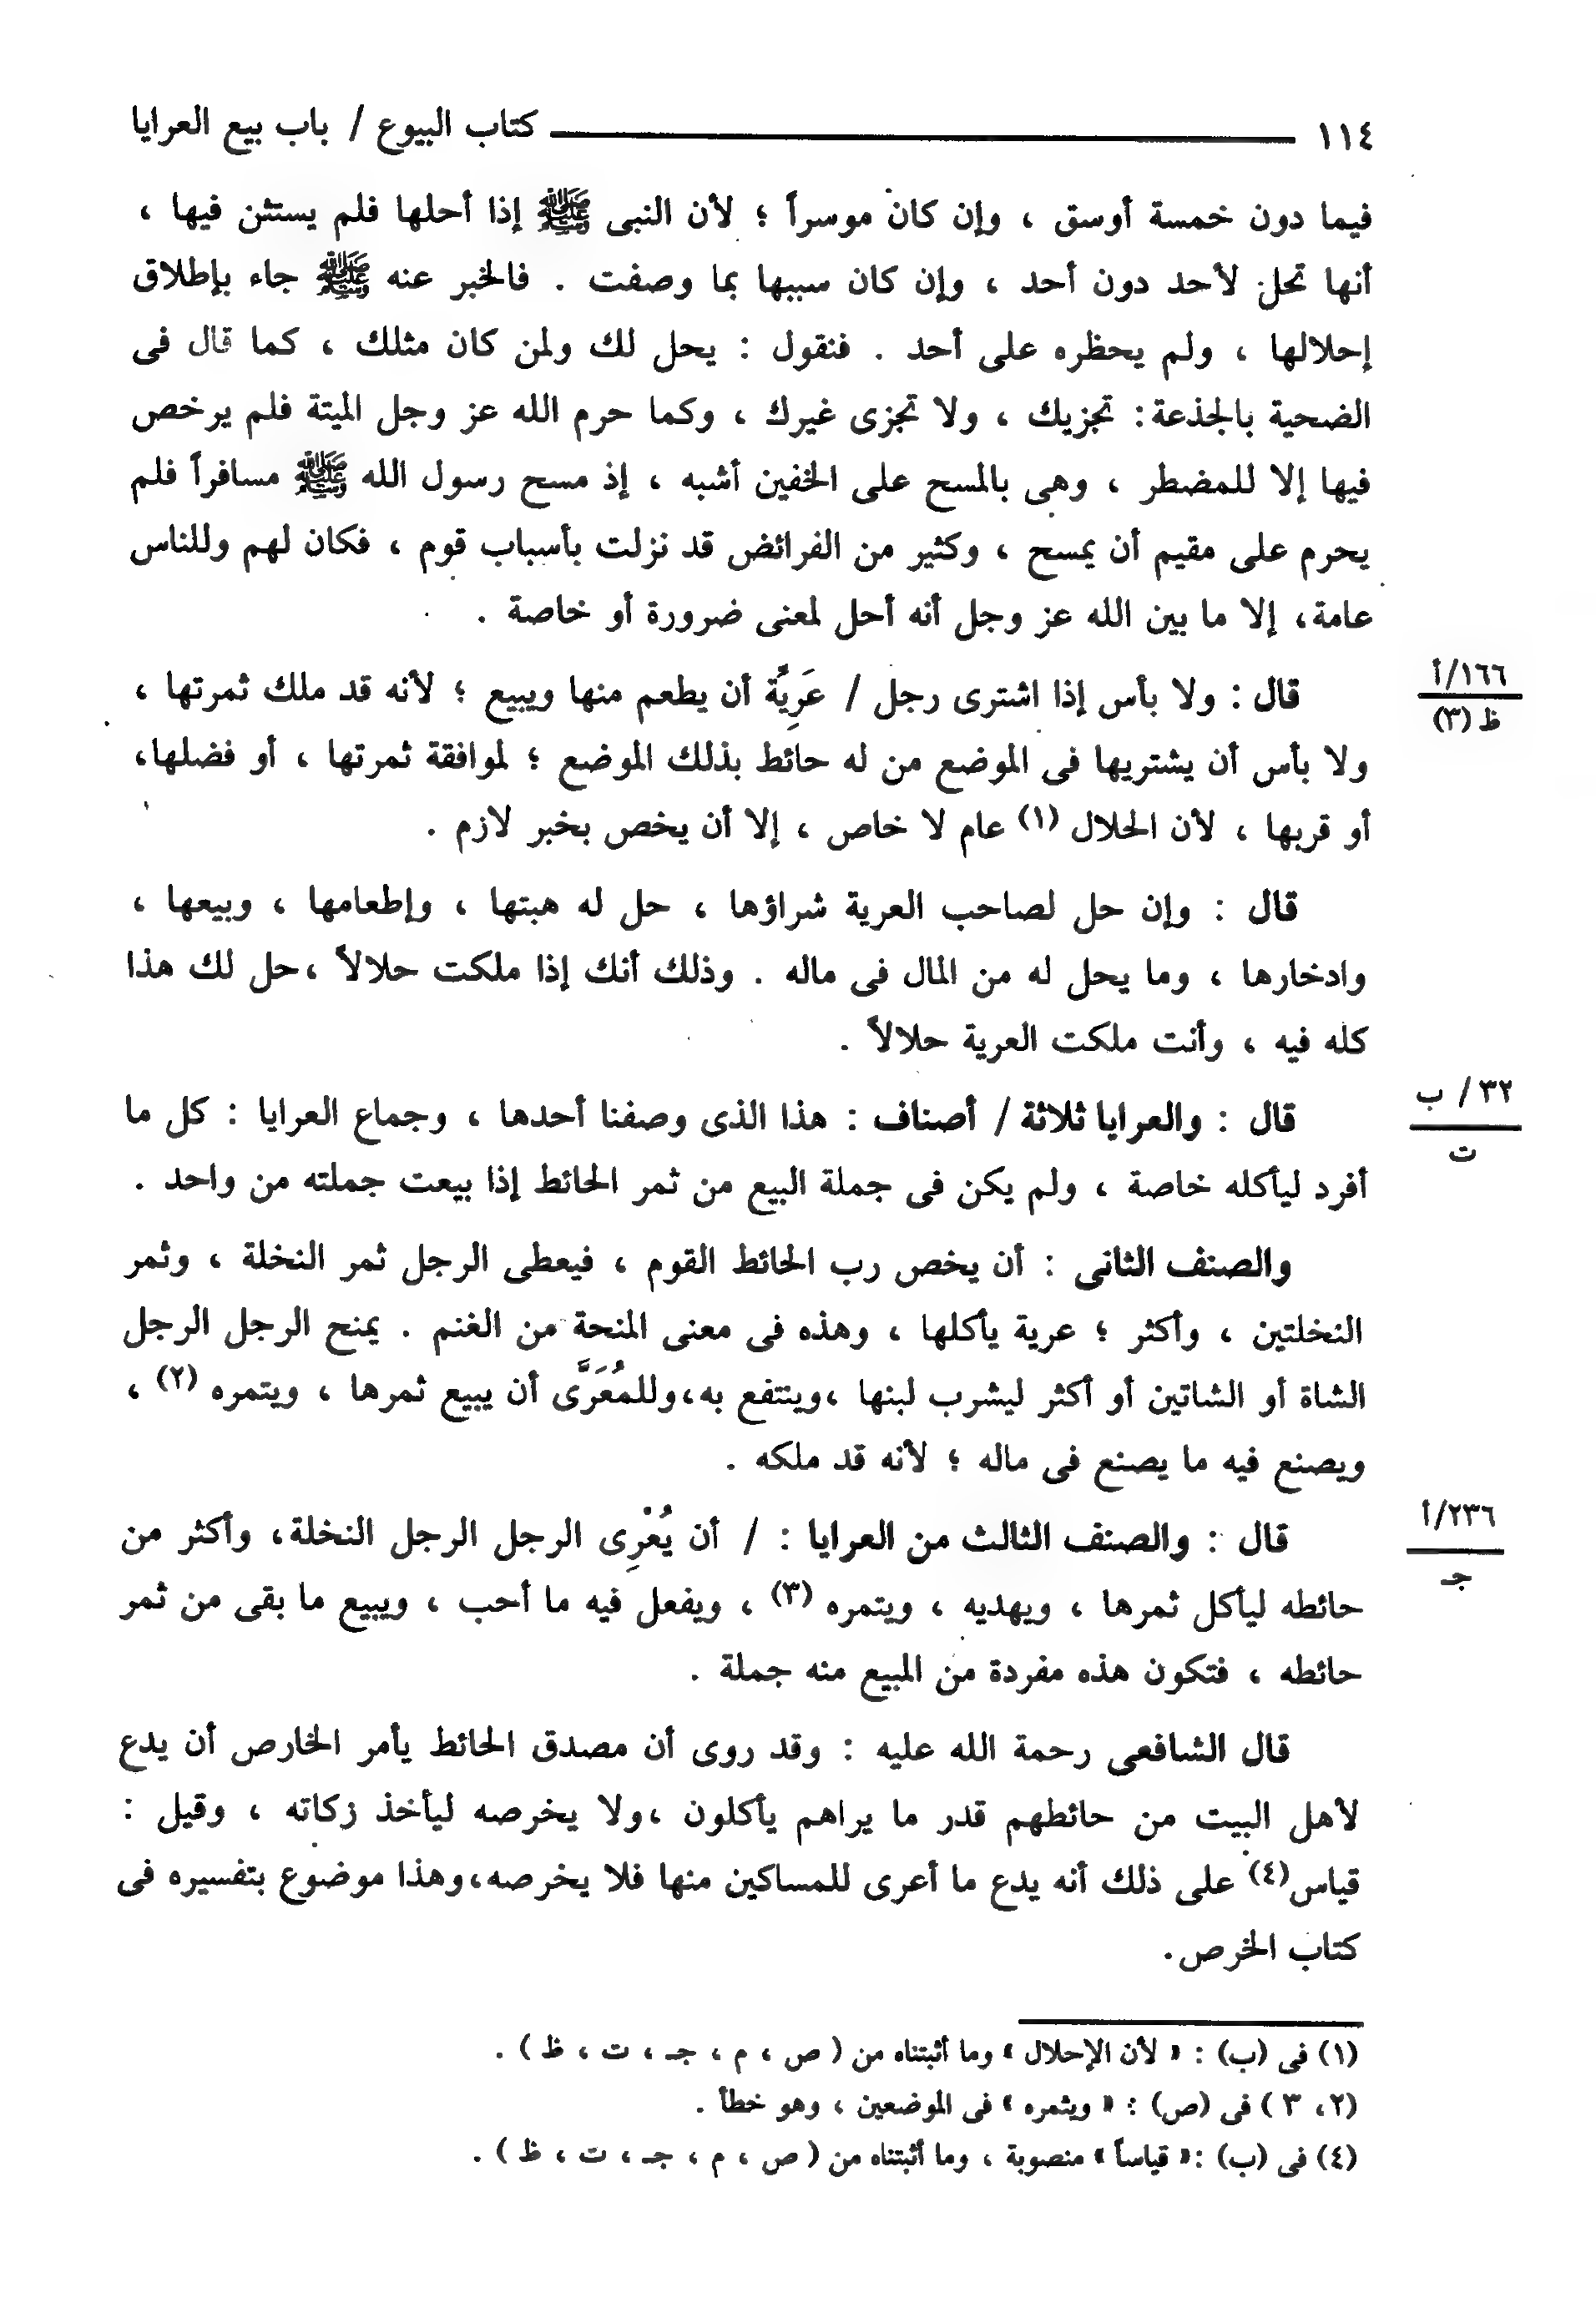 ١١٤ كتاب البيوع / باب بيع العرايا
فيما دون خمسة أوسق ، وإن كان موسراً ؛ لأن النبى ﷺ إذا أحلها فلم يستثن فيها ،
أنها تحل لأحد دون أحد ، وإن كان سببها بما وصفت . فالخبر عنه ﷺ جاء بإطلاق
إحلالها ، ولم يحظره على أحد . فنقول : يحل لك ولمن كان مثلك ، كما قال فى
الضحية بالجذعة : تجزيك ، ولا تجزى غيرك ، وكما حرم الله عز وجل الميتة فلم يرخص
فيها إلا للمضطر ، وهى بالمسح على الخفين أشبه ، إذ مسح رسول الله ﷺ مسافراً فلم
يحرم على مقيم أن يمسح ، وكثير من الفرائض قد نزلت بأسباب قوم ، فكان لهم وللناس
عامة، إلا ما بين الله عز وجل أنه أحل لمعنى ضرورة أو خاصة .
١٦٦/أ
ظ (٣)
قال : ولا بأس إذا اشترى رجل / عَرِيَّة أن يطعم منها ويبيع ؛ لأنه قد ملك ثمرتها ،
ولا بأس أن يشتريها فى الموضع من له حائط بذلك الموضع ؛ لموافقة ثمرتها ، أو فضلها،
أو قربها ، لأن الحلال (١) عام لا خاص ، إلا أن يخص بخبر لازم .
قال : وإن حل لصاحب العرية شراؤها ، حل له هبتها ، وإطعامها ، وبيعها ،
وادخارها ، وما يحل له من المال فى ماله . وذلك أنك إذا ملكت حلالاً ،حل لك هذا
كله فيه ، وأنت ملكت العرية حلالاً .
٣٢ / ب
ت
قال : والعرايا ثلاثة / أصناف : هذا الذى وصفنا أحدها ، وجماع العرايا : كل ما
أفرد ليأكله خاصة ، ولم يكن فى جملة البيع من ثمر الحائط إذا بيعت جملته من واحد .
والصنف الثانى : أن يخص رب الحائط القوم ، فيعطى الرجل ثمر النخلة ، وثمر
النخلتين ، وأكثر ؛ عرية يأكلها ، وهذه فى معنى المنحة من الغنم . يمنح الرجل الرجل
الشاة أو الشاتين أو أكثر ليشرب لبنها ،وينتفع به،وللمُعَرَّى أن يبيع ثمرها ، ويتمره (٢) ،
ويصنع فيه ما يصنع فى ماله ؛ لأنه قد ملكه .
٢٣٦/أ
جـ
قال : والصنف الثالث من العرايا : / أن يُعْرِى الرجل الرجل النخلة، وأكثر من
حائطه ليأكل ثمرها ، ويهديه ، ويتمره (٣) ، ويفعل فيه ما أحب ، ويبيع ما بقى من ثمر
حائطه ، فتكون هذه مفردة من المبيع منه جملة .
قال الشافعى رحمة الله عليه : وقد روى أن مصدق الحائط يأمر الخارص أن يدع
لأهل البيت من حائطهم قدر ما يراهم يأكلون ،ولا يخرصه ليأخذ زكاته ، وقيل :
قياس(٤) على ذلك أنه يدع ما أعرى للمساكين منها فلا يخرصه،وهذا موضوع بتفسيره فى
كتاب الخرص.
(١) فى (ب) : « لأن الإحلال » وما أثبتناه من ( ص ، م ، جـ ، ت ، ظ ) .
(٢، ٣ ) فى (ص) : « ويثمره » فى الموضعين ، وهو خطأ .
(٤) فى (ب) :« قياساً » منصوبة ، وما أثبتناه من ( ص ، م ، جـ ، ت ، ظ ) .